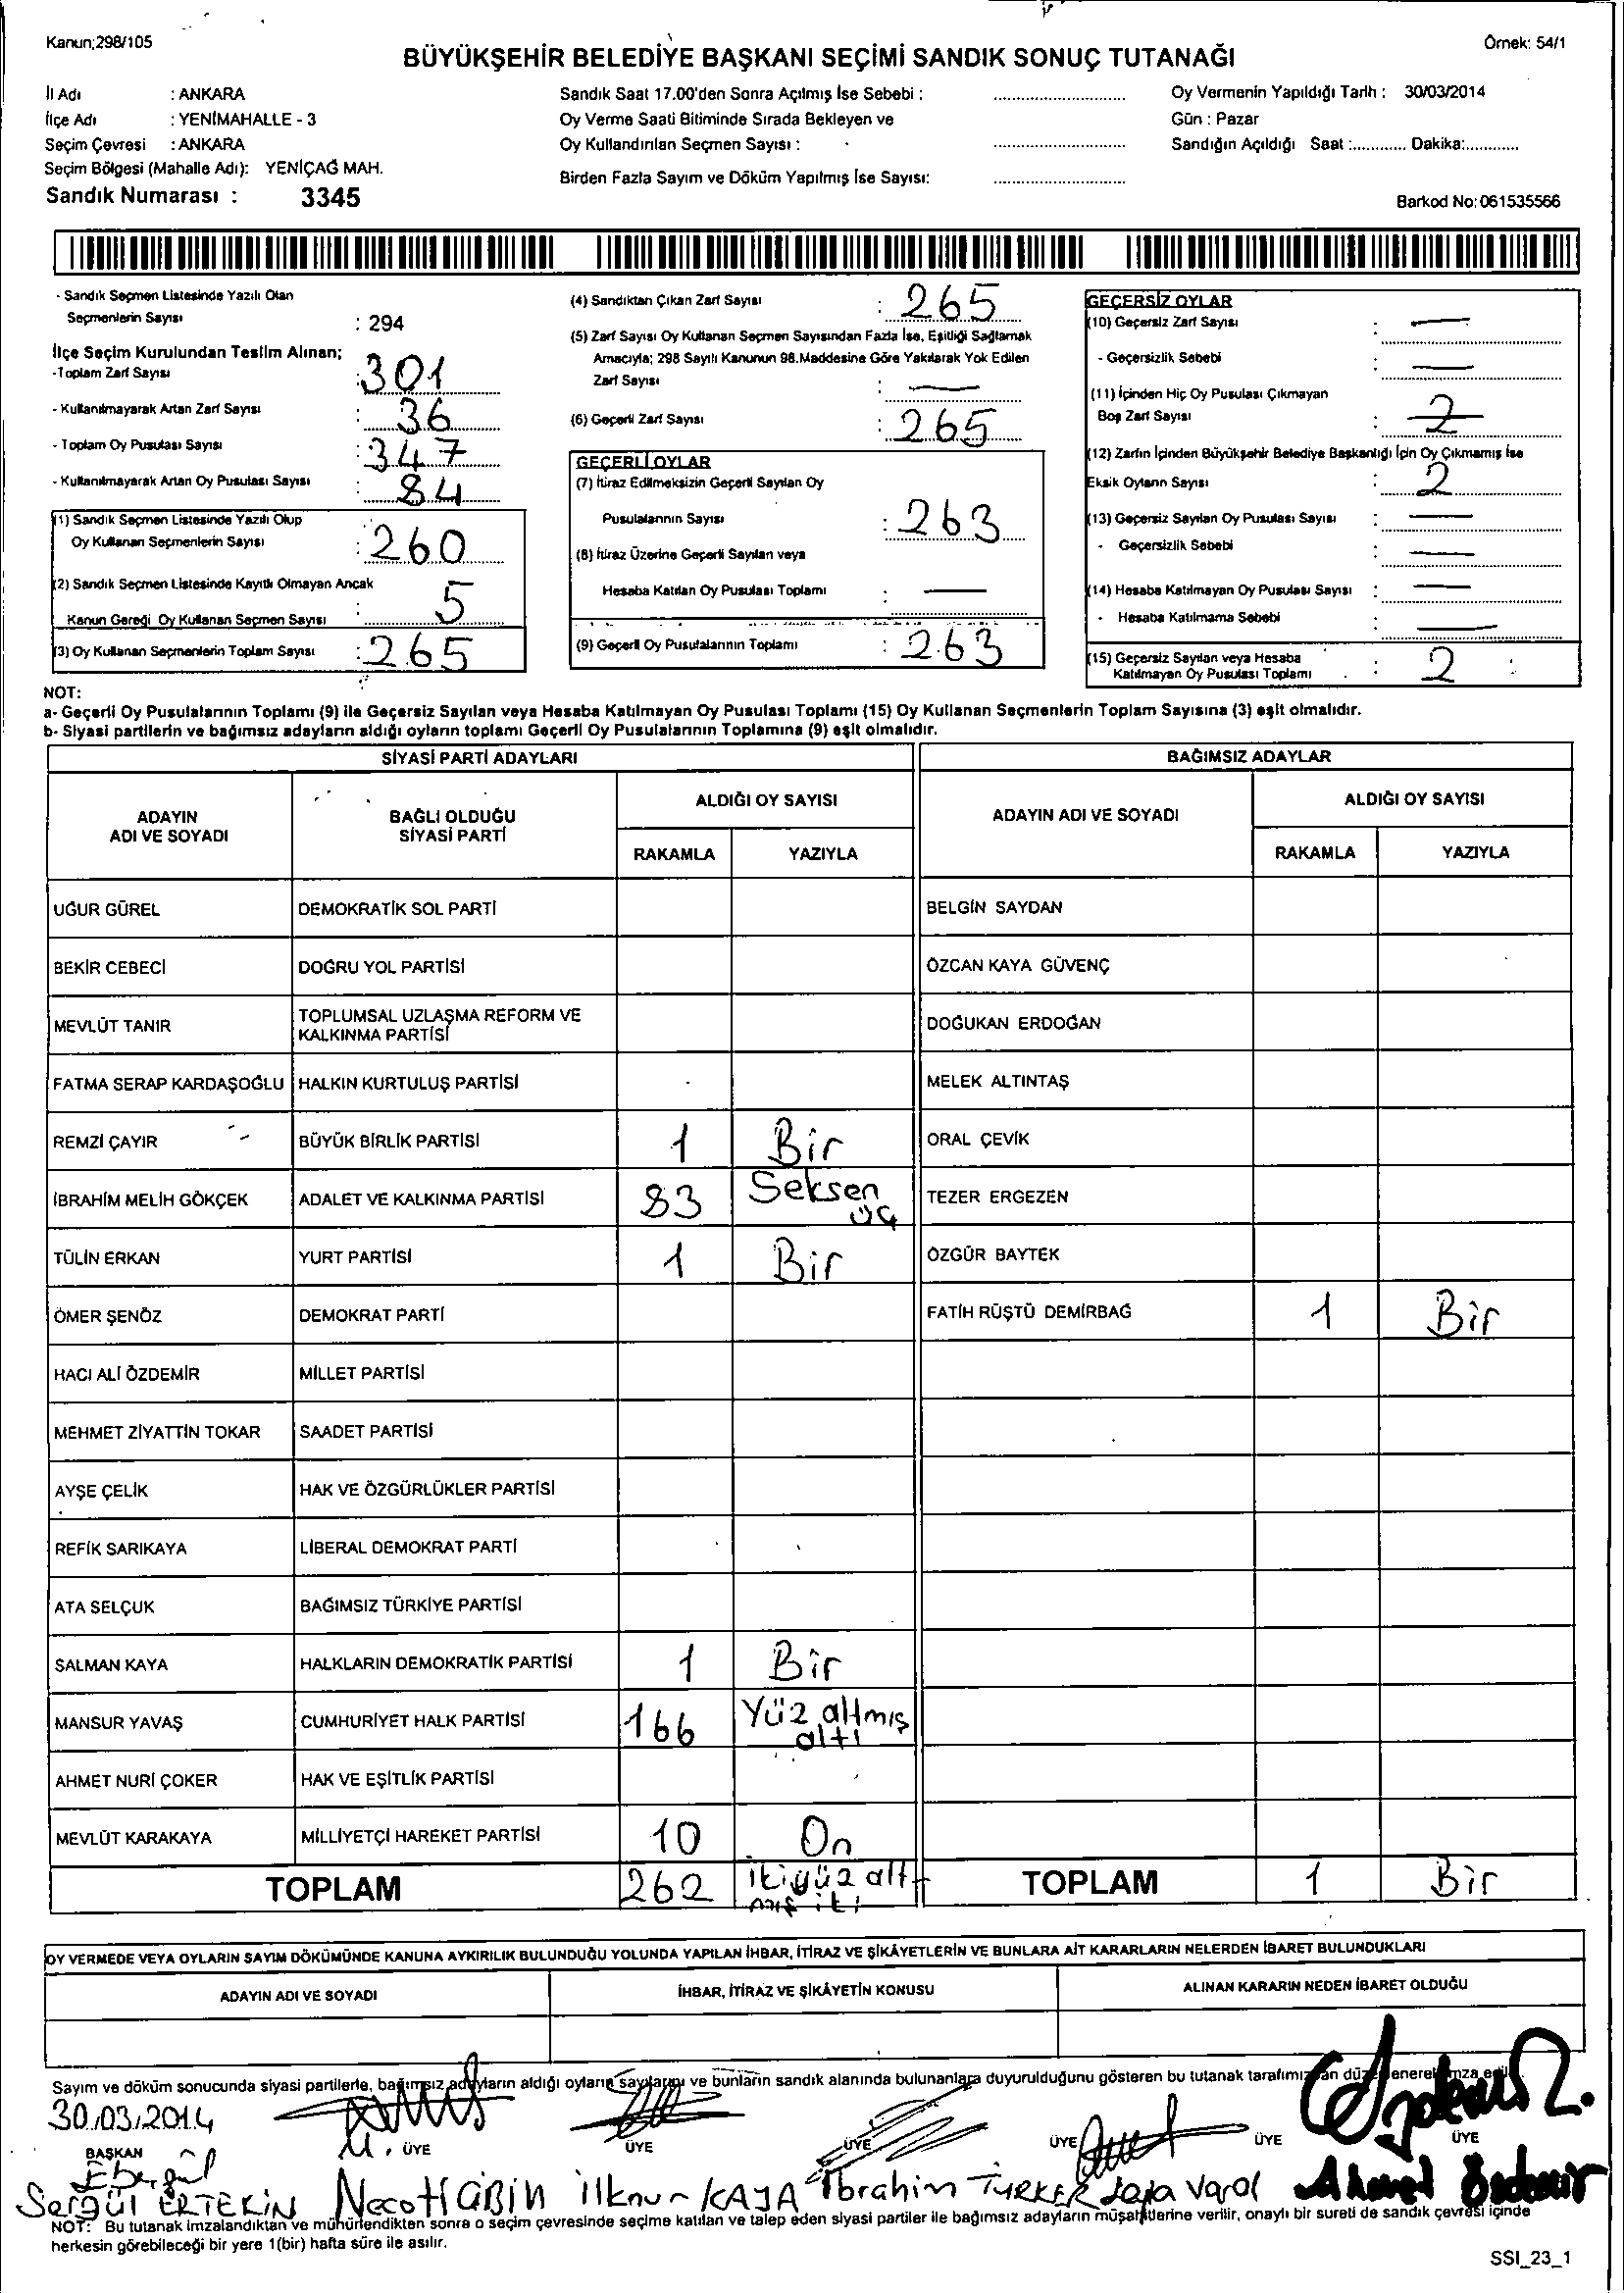 Kanun;298/105
Örnek: 54/1
BÜYÜKŞEHİR BELEDİYE BAŞKANI SEÇİMİ SANDIK SONUÇ TUTANAĞI
İl Adı : ANKARA
İlçe Adı : YENİMAHALLE - 3
Seçim Çevresi : ANKARA
Seçim Bölgesi (Mahalle Adı): YENİÇAĞ MAH.
Sandık Numarası : 3345
Sandık Saat 17.00'den Sonra Açılmış İse Sebebi :
Oy Verme Saati Bitiminde Sırada Bekleyen ve
Oy Kullandırılan Seçmen Sayısı :
Birden Fazla Sayım ve Döküm Yapılmış İse Sayısı:
Oy Vermenin Yapıldığı Tarih : 30/03/2014
Gün : Pazar
Sandığın Açıldığı Saat :............ Dakika:............
Barkod No:061535566
- Sandık Seçmen Listesinde Yazılı Olan
Seçmenlerin Sayısı : 294
İlçe Seçim Kurulundan Teslim Alınan;
-Toplam Zarf Sayısı : 301
- Kullanılmayarak Artan Zarf Sayısı : 36
- Toplam Oy Pusulası Sayısı : 347
- Kullanılmayarak Artan Oy Pusulası Sayısı : 84
(1) Sandık Seçmen Listesinde Yazılı Olup
Oy Kullanan Seçmenlerin Sayısı : 260
(2) Sandık Seçmen Listesinde Kayıtlı Olmayan Ancak
Kanun Gereği Oy Kullanan Seçmen Sayısı : 5
(3) Oy Kullanan Seçmenlerin Toplam Sayısı : 265
(4) Sandıktan Çıkan Zarf Sayısı : 265
(5) Zarf Sayısı Oy Kullanan Seçmen Sayısından Fazla İse, Eşitliği Sağlamak
Amacıyla; 298 Sayılı Kanunun 98.Maddesine Göre Yakılarak Yok Edilen
Zarf Sayısı : —
(6) Geçerli Zarf Sayısı : 265
GEÇERLİ OYLAR
(7) İtiraz Edilmeksizin Geçerli Sayılan Oy
Pusulalarının Sayısı : 263
(8) İtiraz Üzerine Geçerli Sayılan veya
Hesaba Katılan Oy Pusulası Toplamı : —
(9) Geçerli Oy Pusulalarının Toplamı : 263
GEÇERSİZ OYLAR
(10) Geçersiz Zarf Sayısı : —
- Geçersizlik Sebebi : —
(11) İçinden Hiç Oy Pusulası Çıkmayan
Boş Zarf Sayısı : 2
(12) Zarfın İçinden Büyükşehir Belediye Başkanlığı İçin Oy Çıkmamış İse
Eksik Oyların Sayısı : 2
(13) Geçersiz Sayılan Oy Pusulası Sayısı : —
- Geçersizlik Sebebi : —
(14) Hesaba Katılmayan Oy Pusulası Sayısı : —
- Hesaba Katılmama Sebebi : —
(15) Geçersiz Sayılan veya Hesaba
Katılmayan Oy Pusulası Toplamı : 2
NOT:
a- Geçerli Oy Pusulalarının Toplamı (9) ile Geçersiz Sayılan veya Hesaba Katılmayan Oy Pusulası Toplamı (15) Oy Kullanan Seçmenlerin Toplam Sayısına (3) eşit olmalıdır.
b- Siyasi partilerin ve bağımsız adayların aldığı oyların toplamı Geçerli Oy Pusulalarının Toplamına (9) eşit olmalıdır.
SİYASİ PARTİ ADAYLARI
BAĞIMSIZ ADAYLAR
ADAYIN ADI VE SOYADI
BAĞLI OLDUĞU SİYASİ PARTİ
ALDIĞI OY SAYISI
RAKAMLA YAZIYLA
ADAYIN ADI VE SOYADI
ALDIĞI OY SAYISI
RAKAMLA YAZIYLA
UĞUR GÜREL DEMOKRATİK SOL PARTİ BELGİN SAYDAN
BEKİR CEBECİ DOĞRU YOL PARTİSİ ÖZCAN KAYA GÜVENÇ
MEVLÜT TANIR TOPLUMSAL UZLAŞMA REFORM VE KALKINMA PARTİSİ DOĞUKAN ERDOĞAN
FATMA SERAP KARDAŞOĞLU HALKIN KURTULUŞ PARTİSİ MELEK ALTINTAŞ
REMZİ ÇAYIR BÜYÜK BİRLİK PARTİSİ 1 Bir ORAL ÇEVİK
İBRAHİM MELİH GÖKÇEK ADALET VE KALKINMA PARTİSİ 83 Seksen üç TEZER ERGEZEN
TÜLİN ERKAN YURT PARTİSİ 1 Bir ÖZGÜR BAYTEK
ÖMER ŞENÖZ DEMOKRAT PARTİ FATİH RÜŞTÜ DEMİRBAĞ 1 Bir
HACI ALİ ÖZDEMİR MİLLET PARTİSİ
MEHMET ZİYATTİN TOKAR SAADET PARTİSİ
AYŞE ÇELİK HAK VE ÖZGÜRLÜKLER PARTİSİ
REFİK SARIKAYA LİBERAL DEMOKRAT PARTİ
ATA SELÇUK BAĞIMSIZ TÜRKİYE PARTİSİ
SALMAN KAYA HALKLARIN DEMOKRATİK PARTİSİ 1 Bir
MANSUR YAVAŞ CUMHURİYET HALK PARTİSİ 166 Yüz altmış altı
AHMET NURİ ÇOKER HAK VE EŞİTLİK PARTİSİ
MEVLÜT KARAKAYA MİLLİYETÇİ HAREKET PARTİSİ 10 On
TOPLAM 262 ikiyüz altmış iki TOPLAM 1 Bir
OY VERMEDE VEYA OYLARIN SAYIM DÖKÜMÜNDE KANUNA AYKIRILIK BULUNDUĞU YOLUNDA YAPILAN İHBAR, İTİRAZ VE ŞİKÂYETLERİN VE BUNLARA AİT KARARLARIN NELERDEN İBARET BULUNDUKLARI
ADAYIN ADI VE SOYADI İHBAR, İTİRAZ VE ŞİKÂYETİN KONUSU ALINAN KARARIN NEDEN İBARET OLDUĞU
Sayım ve döküm sonucunda siyasi partilerle, bağımsız adayların aldığı oyların sayılarını ve bunların sandık alanında bulunanlara duyurulduğunu gösteren bu tutanak tarafımızdan düzenlenerek imza edildi.
30.03.2014
BAŞKAN ÜYE ÜYE ÜYE ÜYE ÜYE ÜYE
Sergül ERTEKİN Necati GİBİN İlknur KAYA İbrahim TÜRKER Varol Ahmet Özdemir
NOT: Bu tutanak imzalandıktan ve mühürlendikten sonra o seçim çevresinde seçime katılan ve talep eden siyasi partiler ile bağımsız adayların müşahitlerine verilir, onaylı bir sureti de sandık çevresi içinde
herkesin görebileceği bir yere 1(bir) hafta süre ile asılır.
SSI_23_1